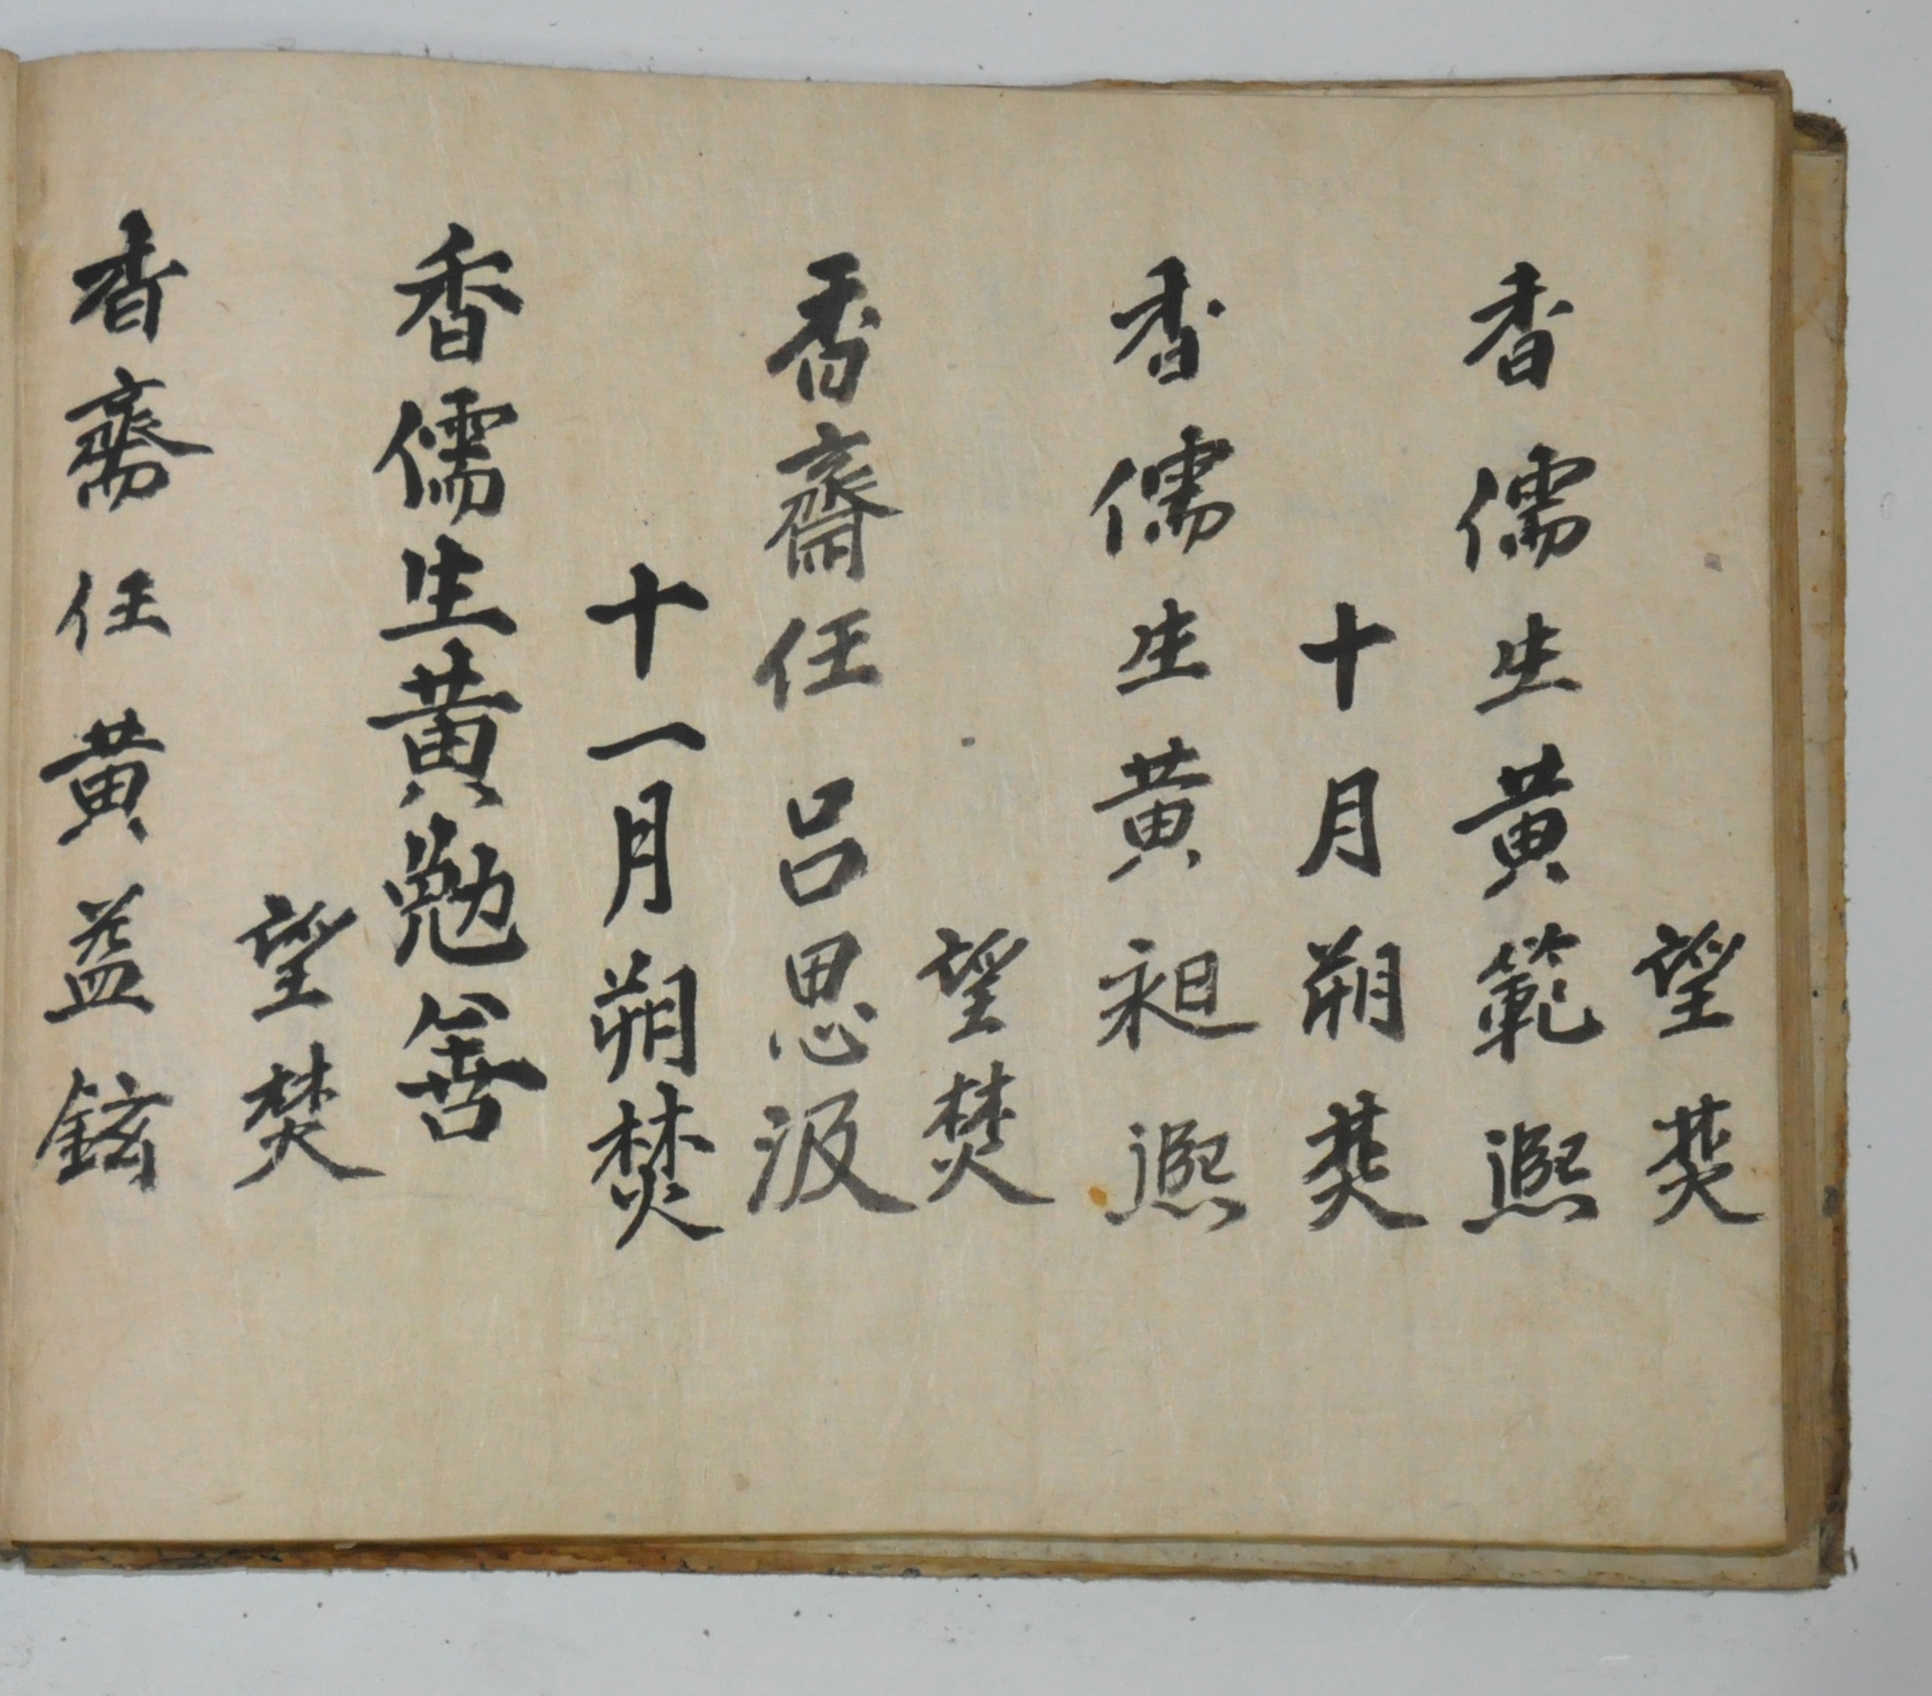 望焚
香儒生黃範熙
十月朔焚
香儒生黃昶熙
望焚
香齋任呂思汲
十一月朔焚
香儒生黃勉善
望焚
香齋任黃益鉉